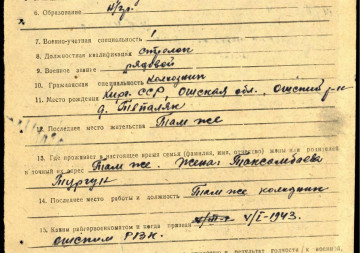 6. Образование н/гр.
7. Военно-учетная специальность 1
8. Должностная квалификация стрелок
9. Военное звание рядовой
10. Гражданская специальность колхозник
11. Место рождения Кирг. ССР Ошская обл., Ошский р-н
д. Тепаляк
12. Последнее место жительства Там же
13. Где проживает в настоящее время семья (фамилия, имя, отчество) жены или родителей
и точный их адрес Там же. Жена: Таксамбаева
Тургун
14. Последнее место работы и должность Там же колхозник
15. Каким райгорвоенкоматом и когда призван V/I-1943.
Ошским РВК.